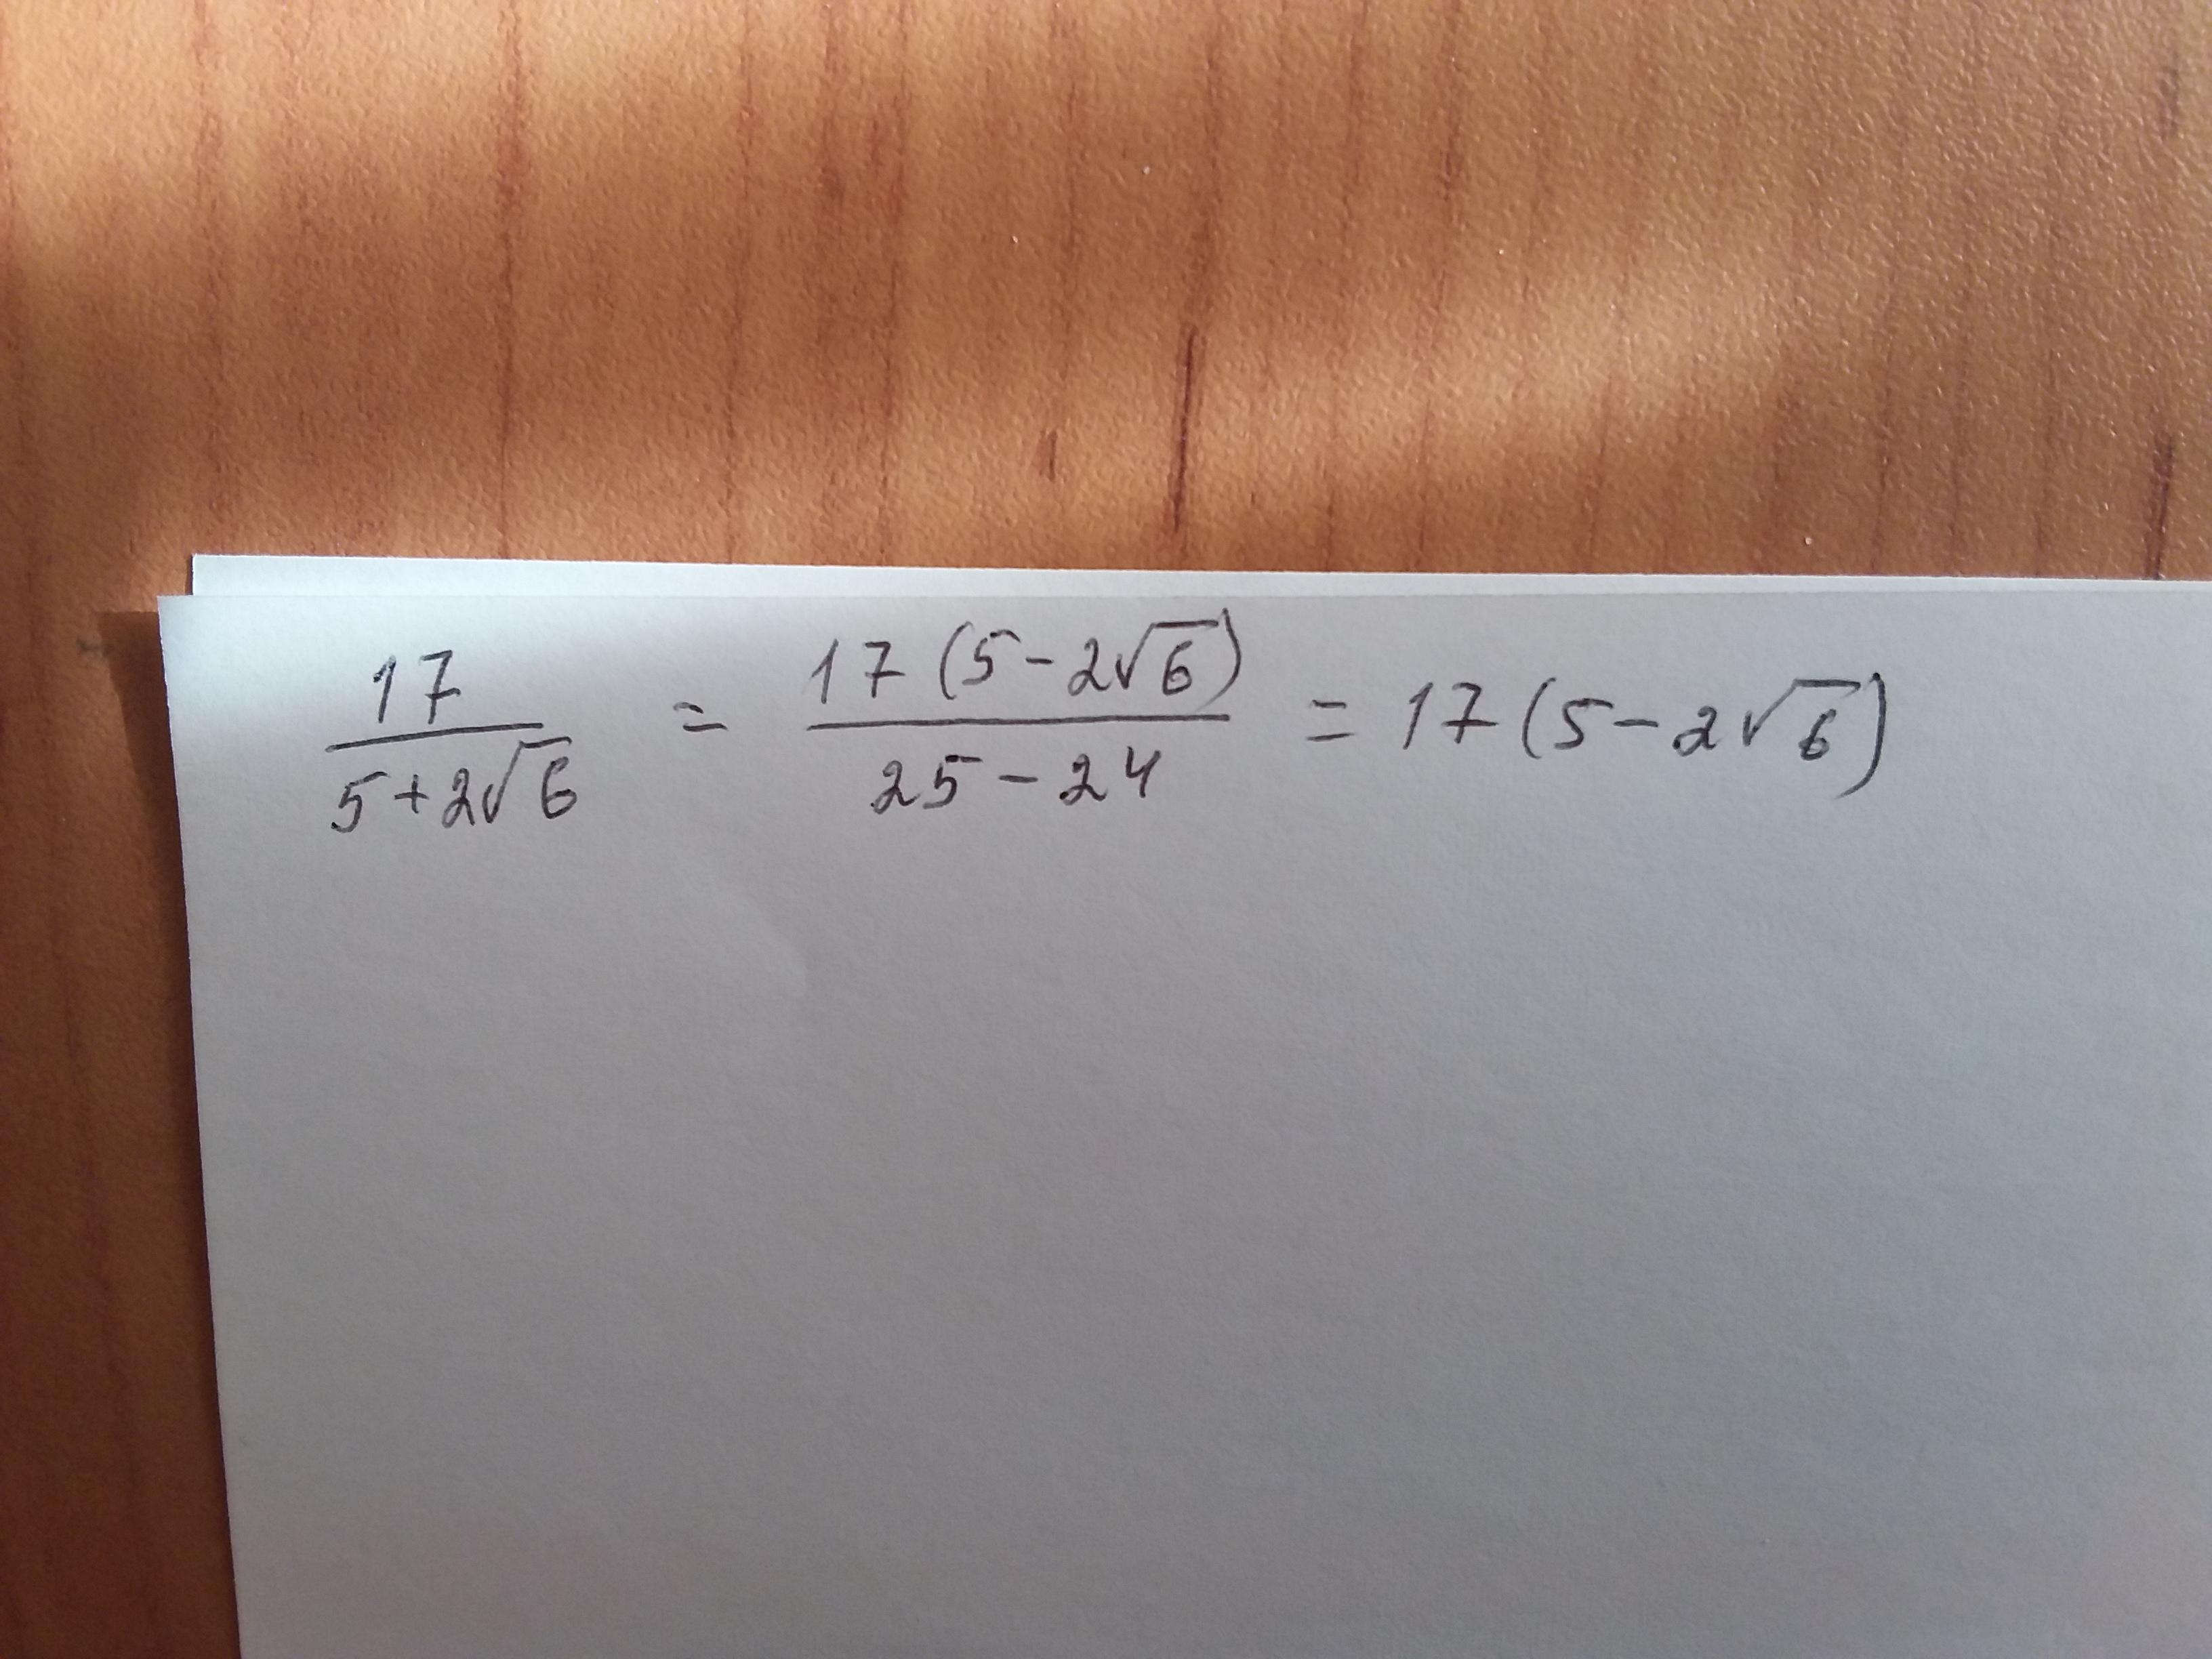 17/(5+2√6) = 17(5-2√6)/(25-24) = 17(5-2√6)